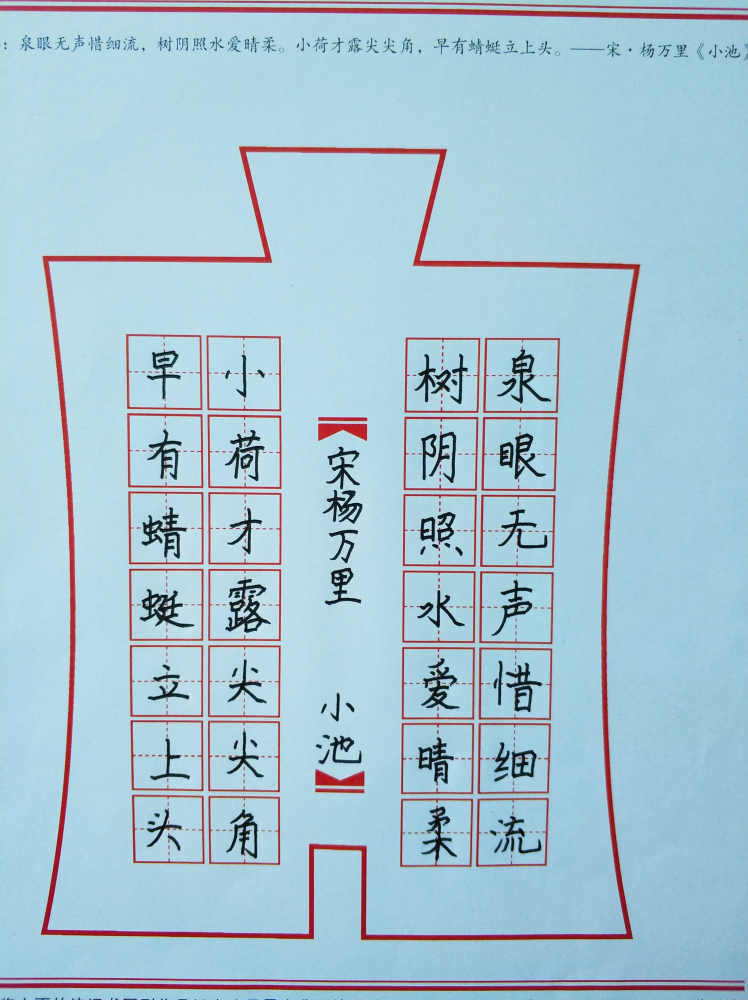 ：泉眼无声惜细流，树阴照水爱晴柔。小荷才露尖尖角，早有蜻蜓立上头。——宋·杨万里《小池》
泉眼无声惜细流
树阴照水爱晴柔
宋杨万里 小池
小荷才露尖尖角
早有蜻蜓立上头